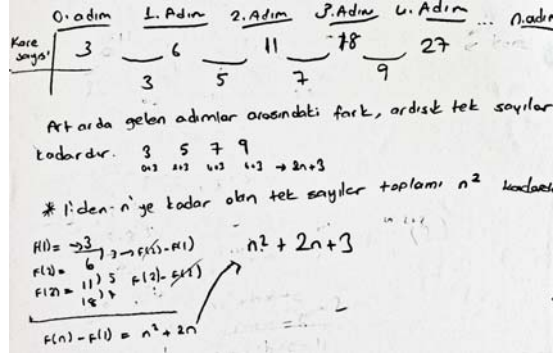 0. adım 1. Adım 2. Adım 3. Adım 4. Adım ... n. adım
Kare sayısı 3 6 11 18 27
3 5 7 9
Art arda gelen adımlar arasındaki fark, ardışık tek sayılar
kadardır. 3 5 7 9
0+3 2+3 4+3 6+3 → 2n+3
* 1'den n'ye kadar olan tek sayılar toplamı n² kadardır
F(1) = → 3
6
11) 5
18) 7
n² + 2n + 3
F(n) - F(1) = n² + 2n